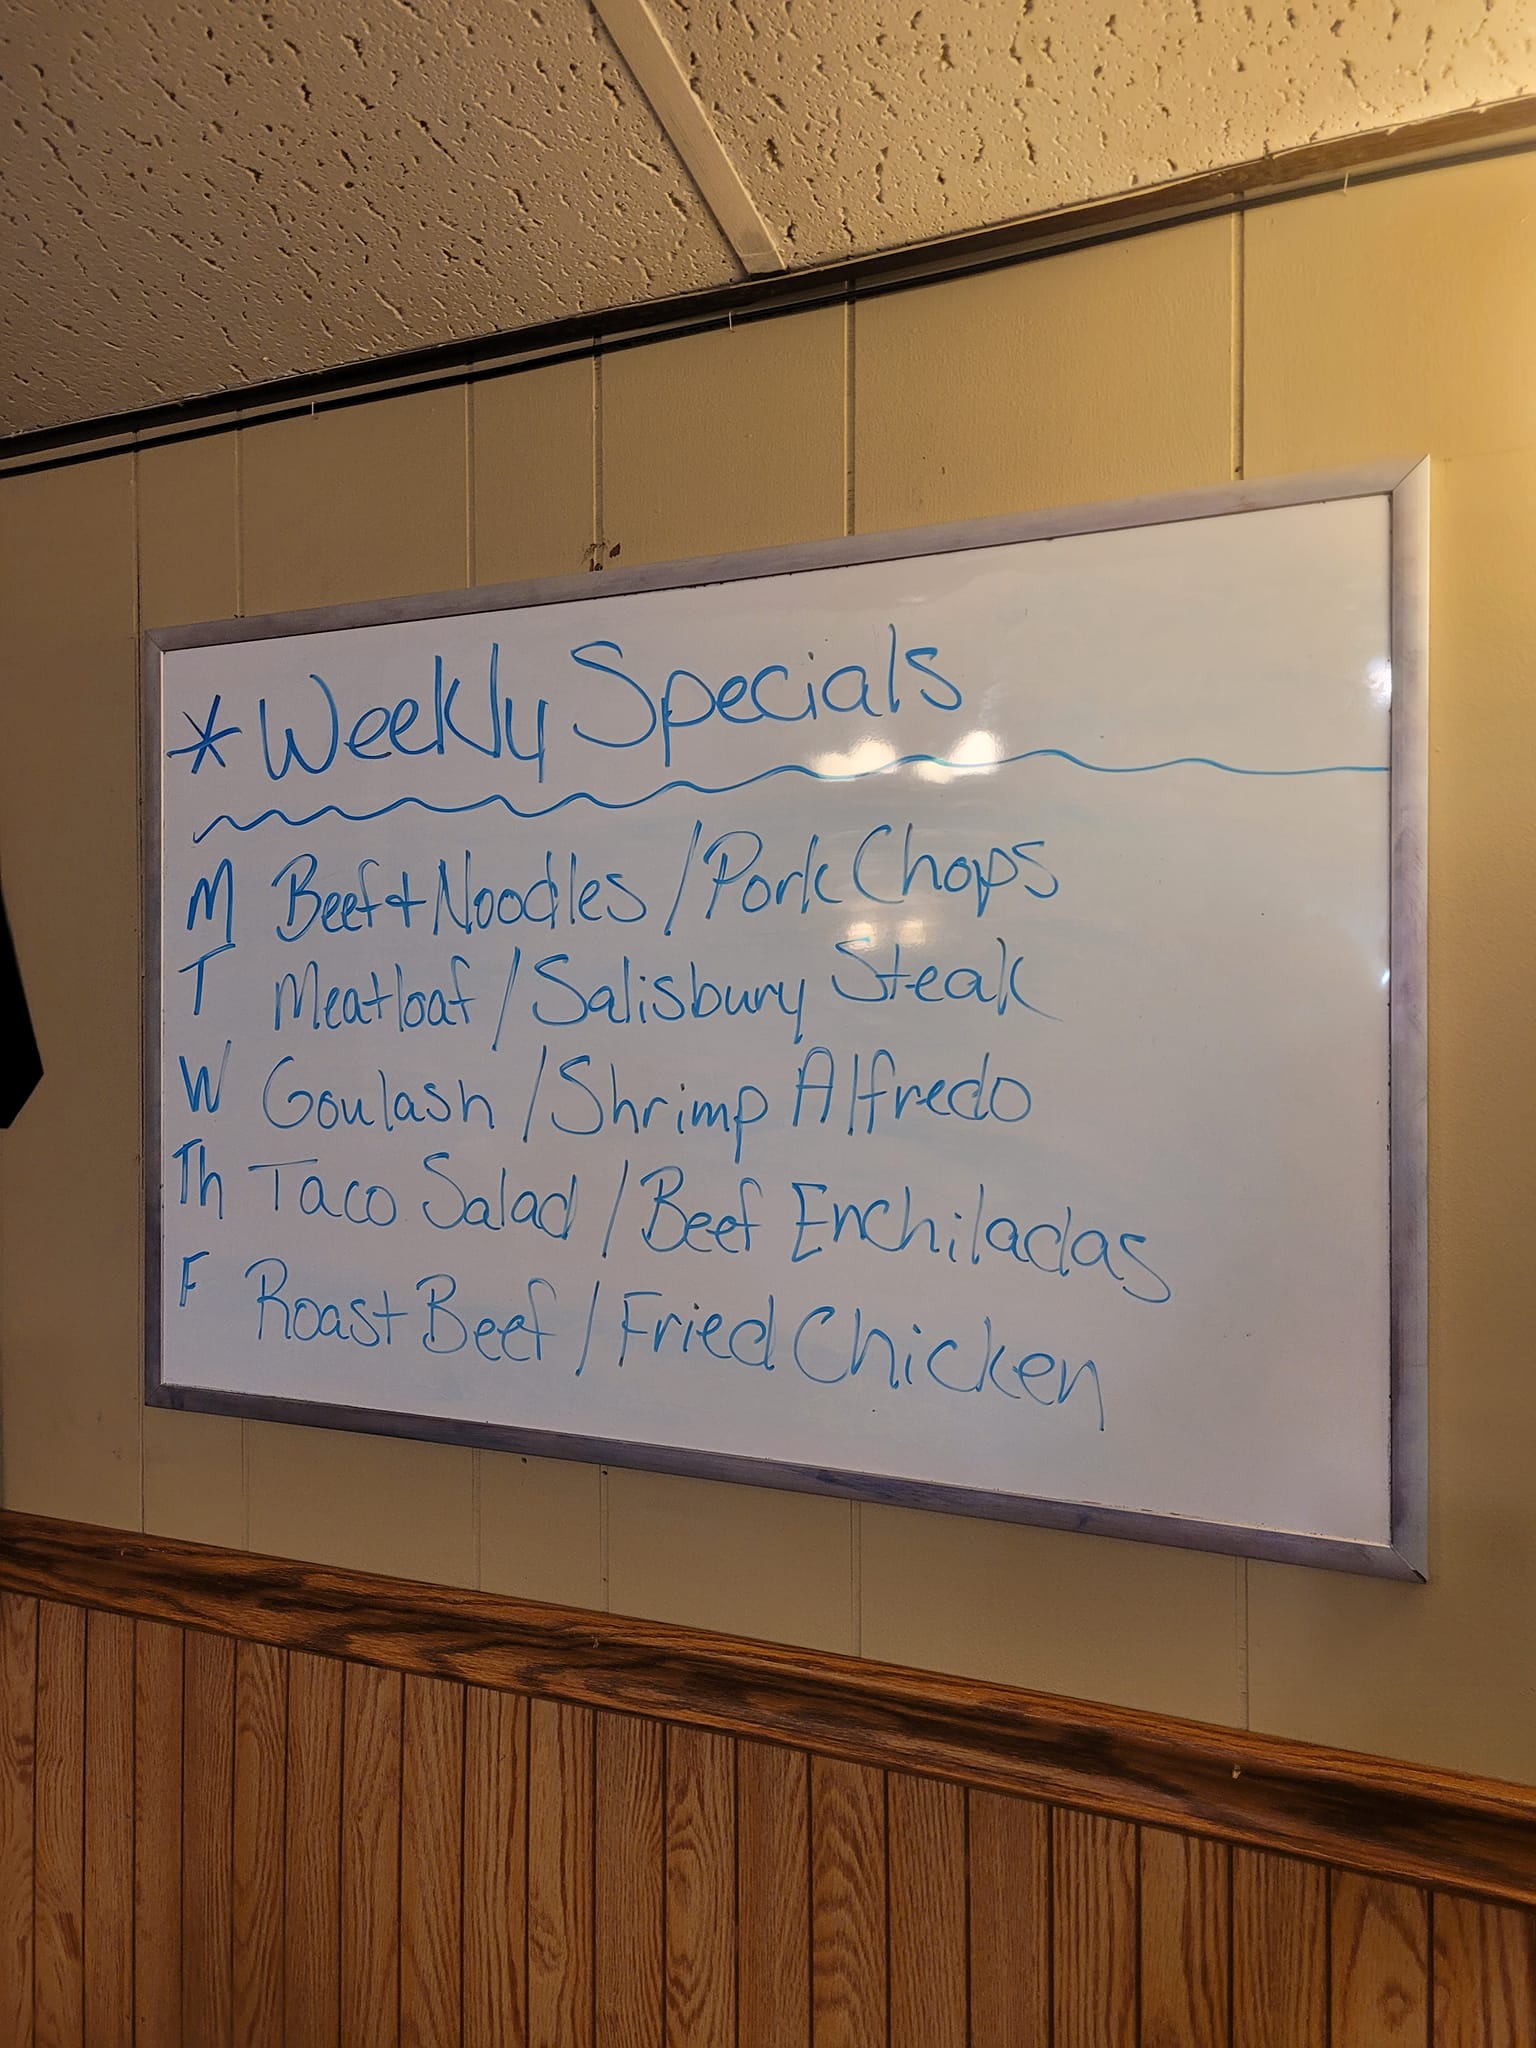 * Weekly Specials
M Beef + Noodles / Pork Chops
T Meatloaf / Salisbury Steak
W Goulash / Shrimp Alfredo
Th Taco Salad / Beef Enchiladas
F Roast Beef / Fried Chicken